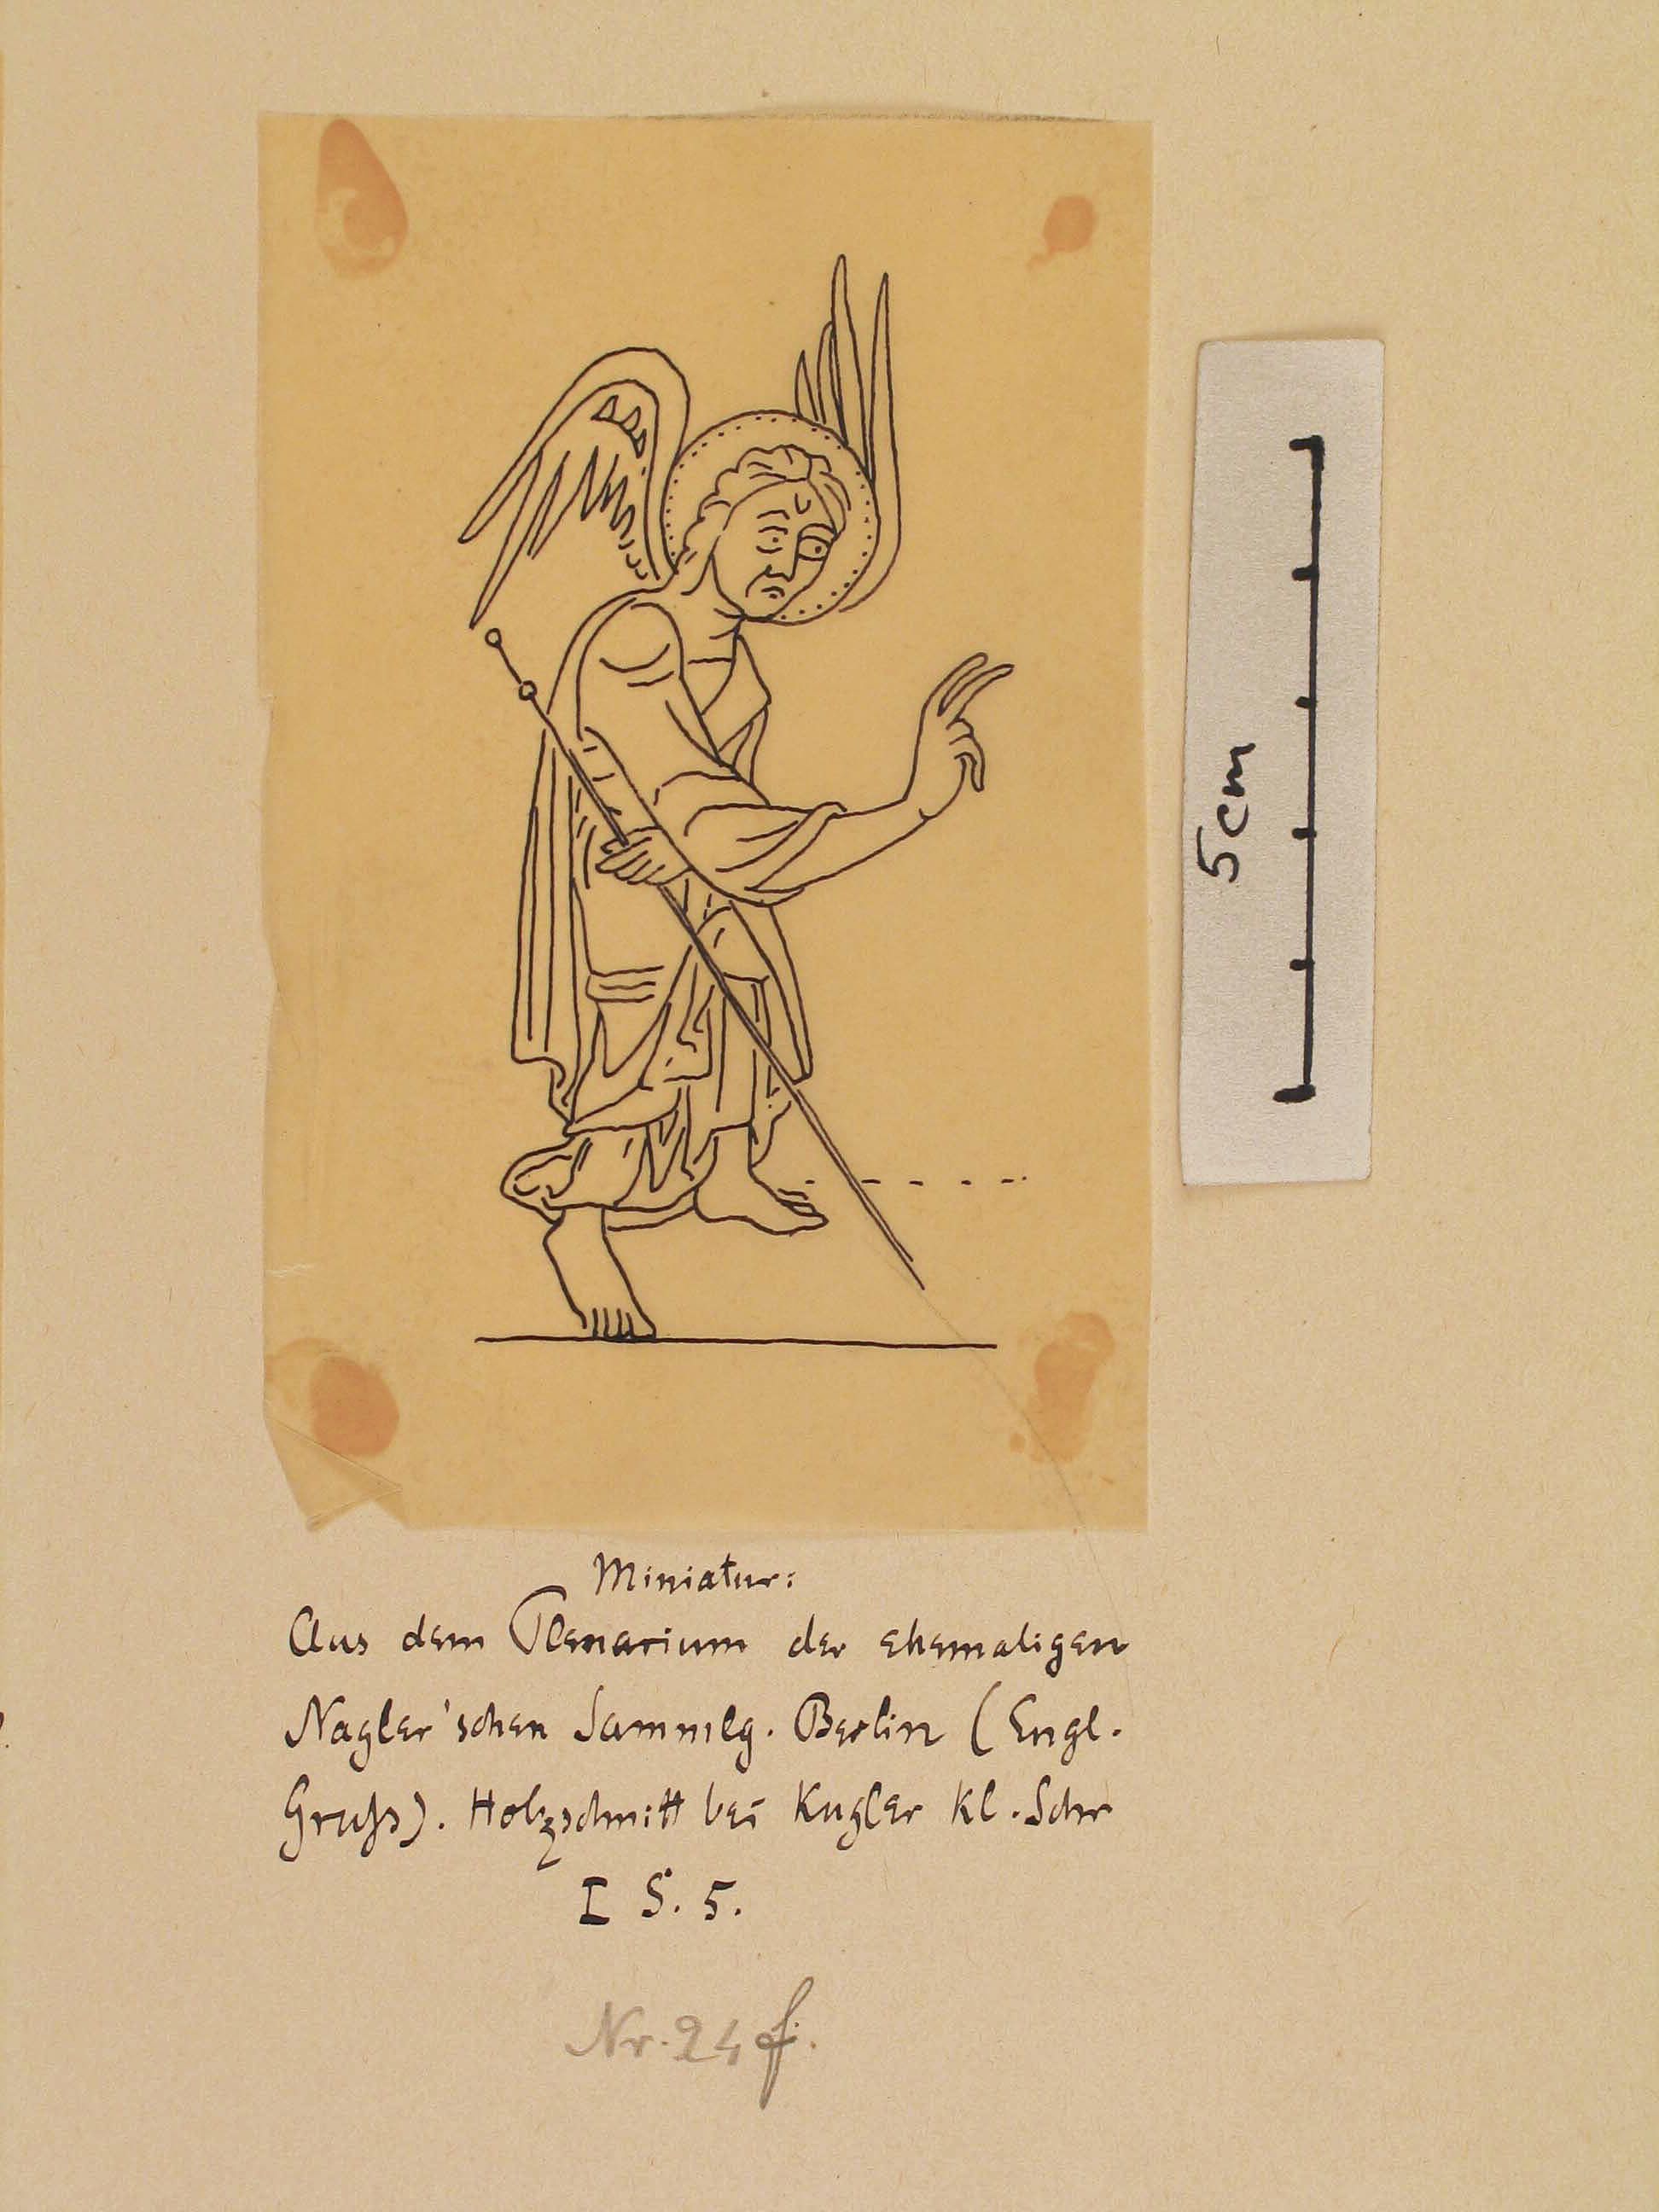 Miniatur:
Aus dem Plenarium der ehemaligen
Nagler'schen Sammlg. Berlin (Engl.
Gruß). Holzschnitt bei Kugler Kl. Schr
I S. 5.
Nr. 24 f.
5cm